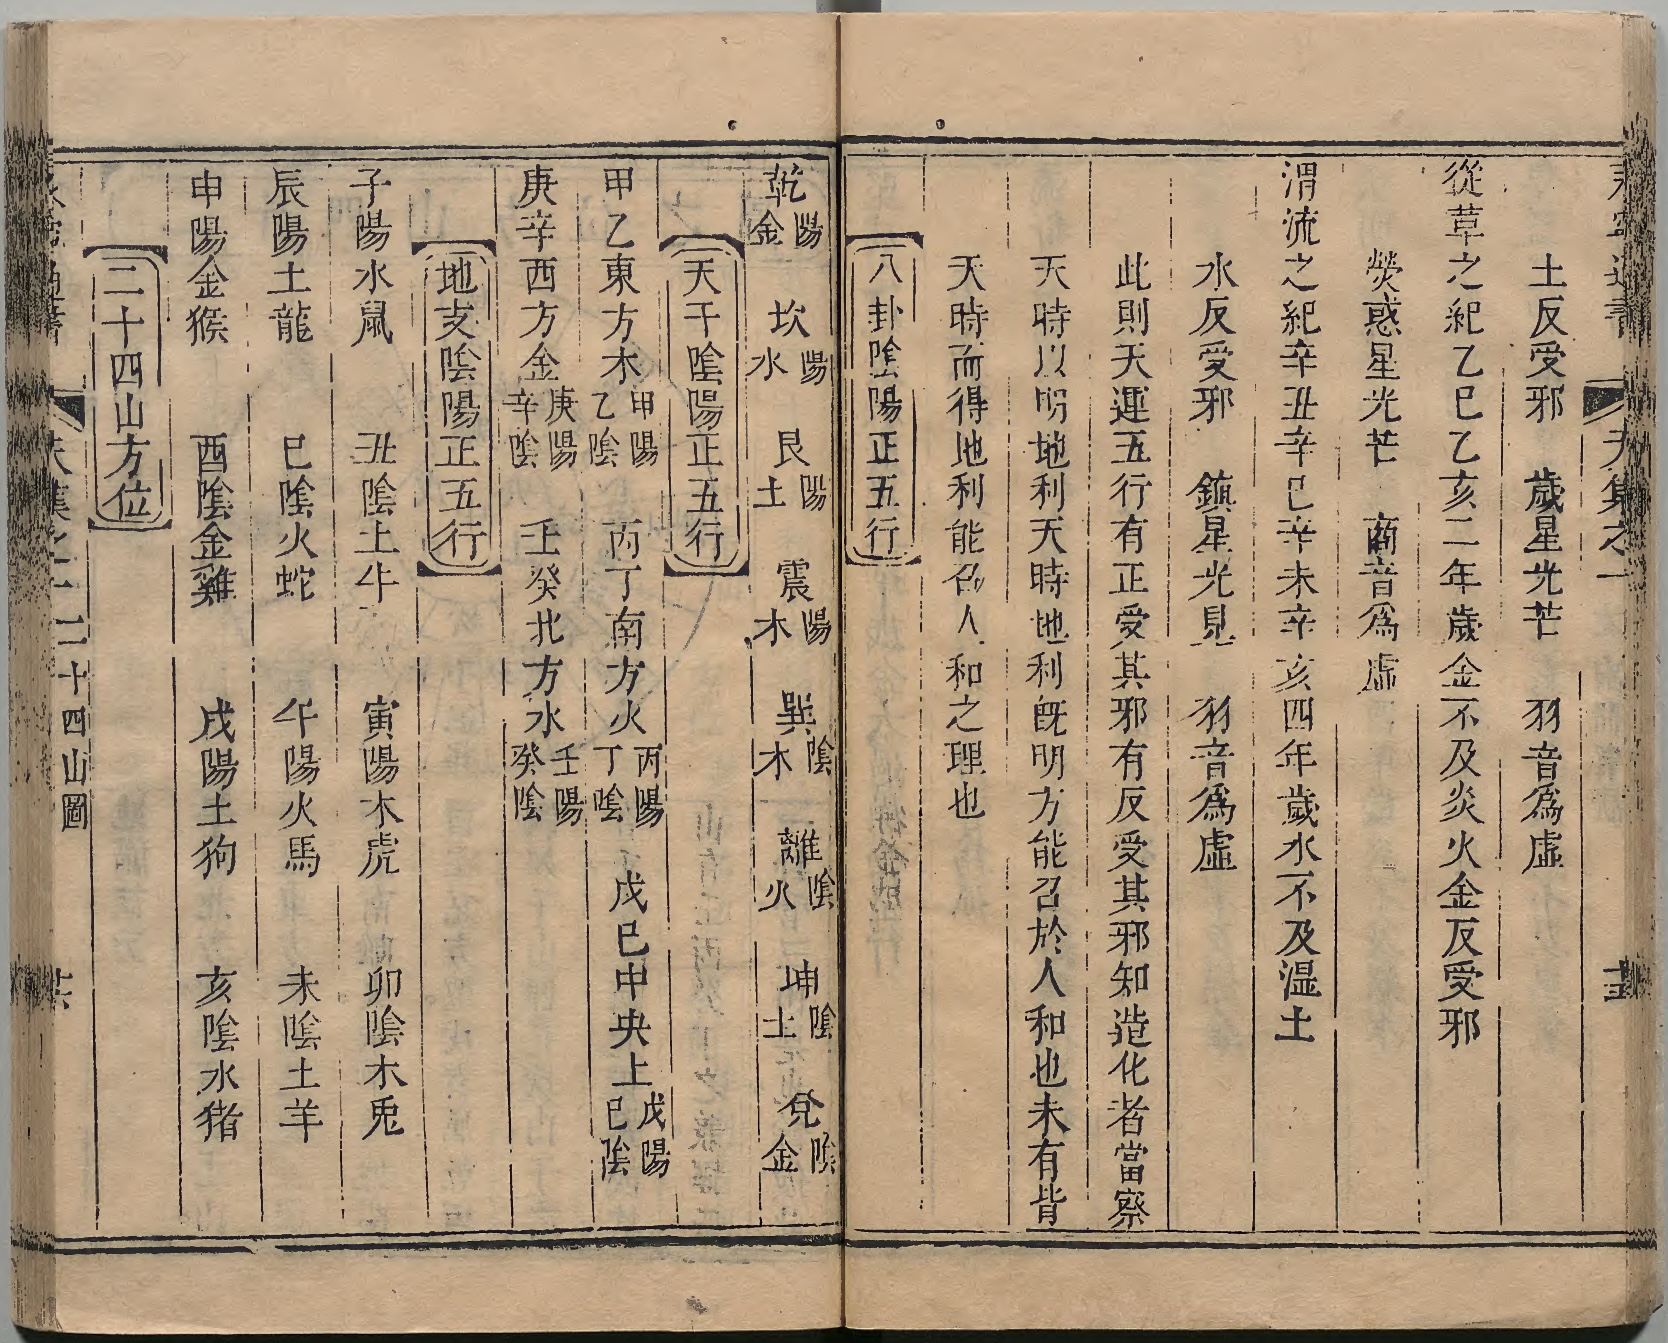 天集之一
土反受邪　歲星光芒　羽音爲虛
從草之紀乙巳乙亥二年歲金不及炎火金反受邪
熒惑星光芒　商音爲虛
涓流之紀辛丑辛巳辛未辛亥四年歲水不及濕土
水反受邪　鎮星光見　羽音爲虛
此則天運五行有正受其邪有反受其邪知造化者當察
天時以明地利天時地利旣明方能召於人和也未有皆
天時而得地利能召人和之理也
八卦陰陽正五行
乾陽金　坎陽水　艮陽土　震陽木　巽陰木　離陰火　坤陰土　兌陰金
天干陰陽正五行
甲乙東方木甲陽乙陰　丙丁南方火丙陽丁陰　戊巳中央土戊陽巳陰
庚辛西方金庚陽辛陰　壬癸北方水壬陽癸陰
地支陰陽正五行
子陽水鼠　丑陰土牛　寅陽木虎　卯陰木兎
辰陽土龍　巳陰火蛇　午陽火馬　未陰土羊
申陽金猴　酉陰金雞　戌陽土狗　亥陰水猪
二十四山方位
二十四山圖